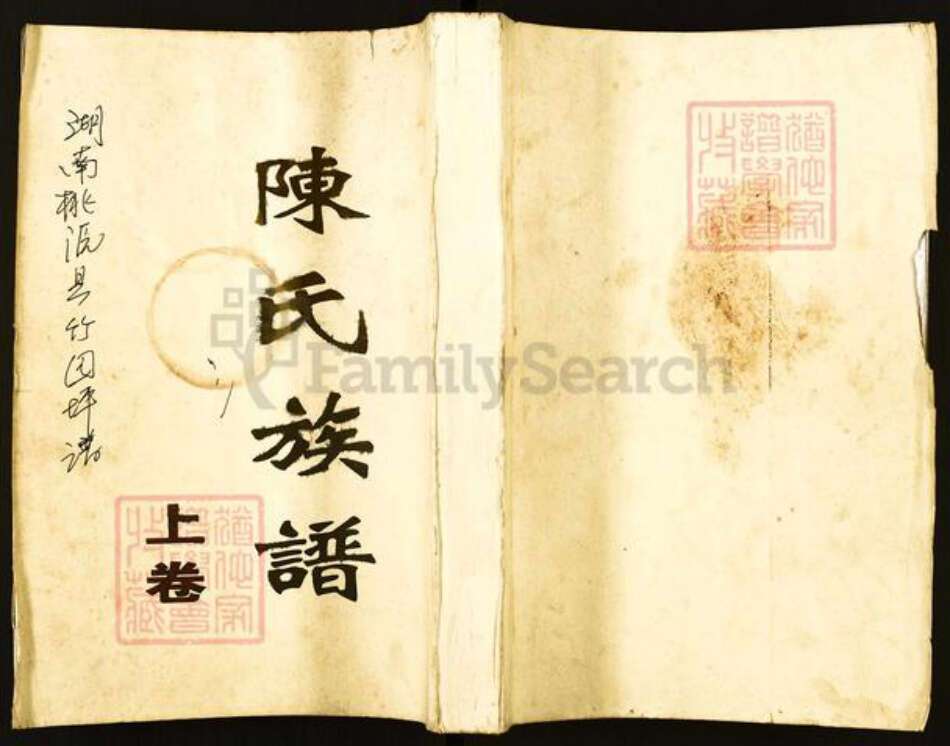 陳氏族譜
上卷
湖南桃沅县竹园坪谱
猶他家譜學會收藏
猶他家譜學會收藏
FamilySearch